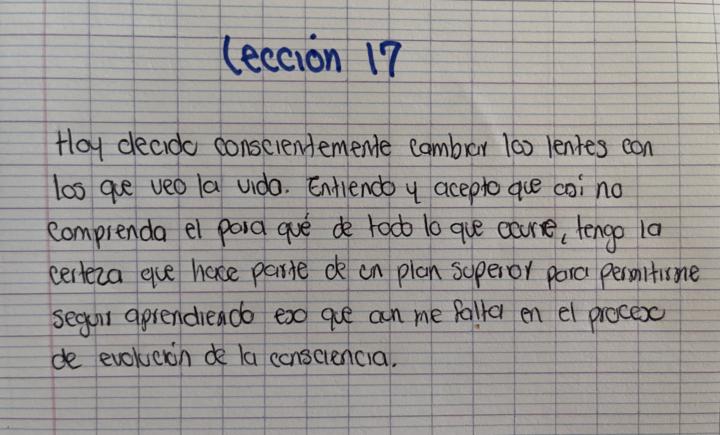 Lección 17
Hoy decido conscientemente cambiar los lentes con
los que veo la vida. Entiendo y acepto que así no
comprenda el para qué de todo lo que ocurre, tengo la
certeza que hace parte de un plan superior para permitirme
seguir aprendiendo eso que aun me falta en el proceso
de evolución de la consciencia.